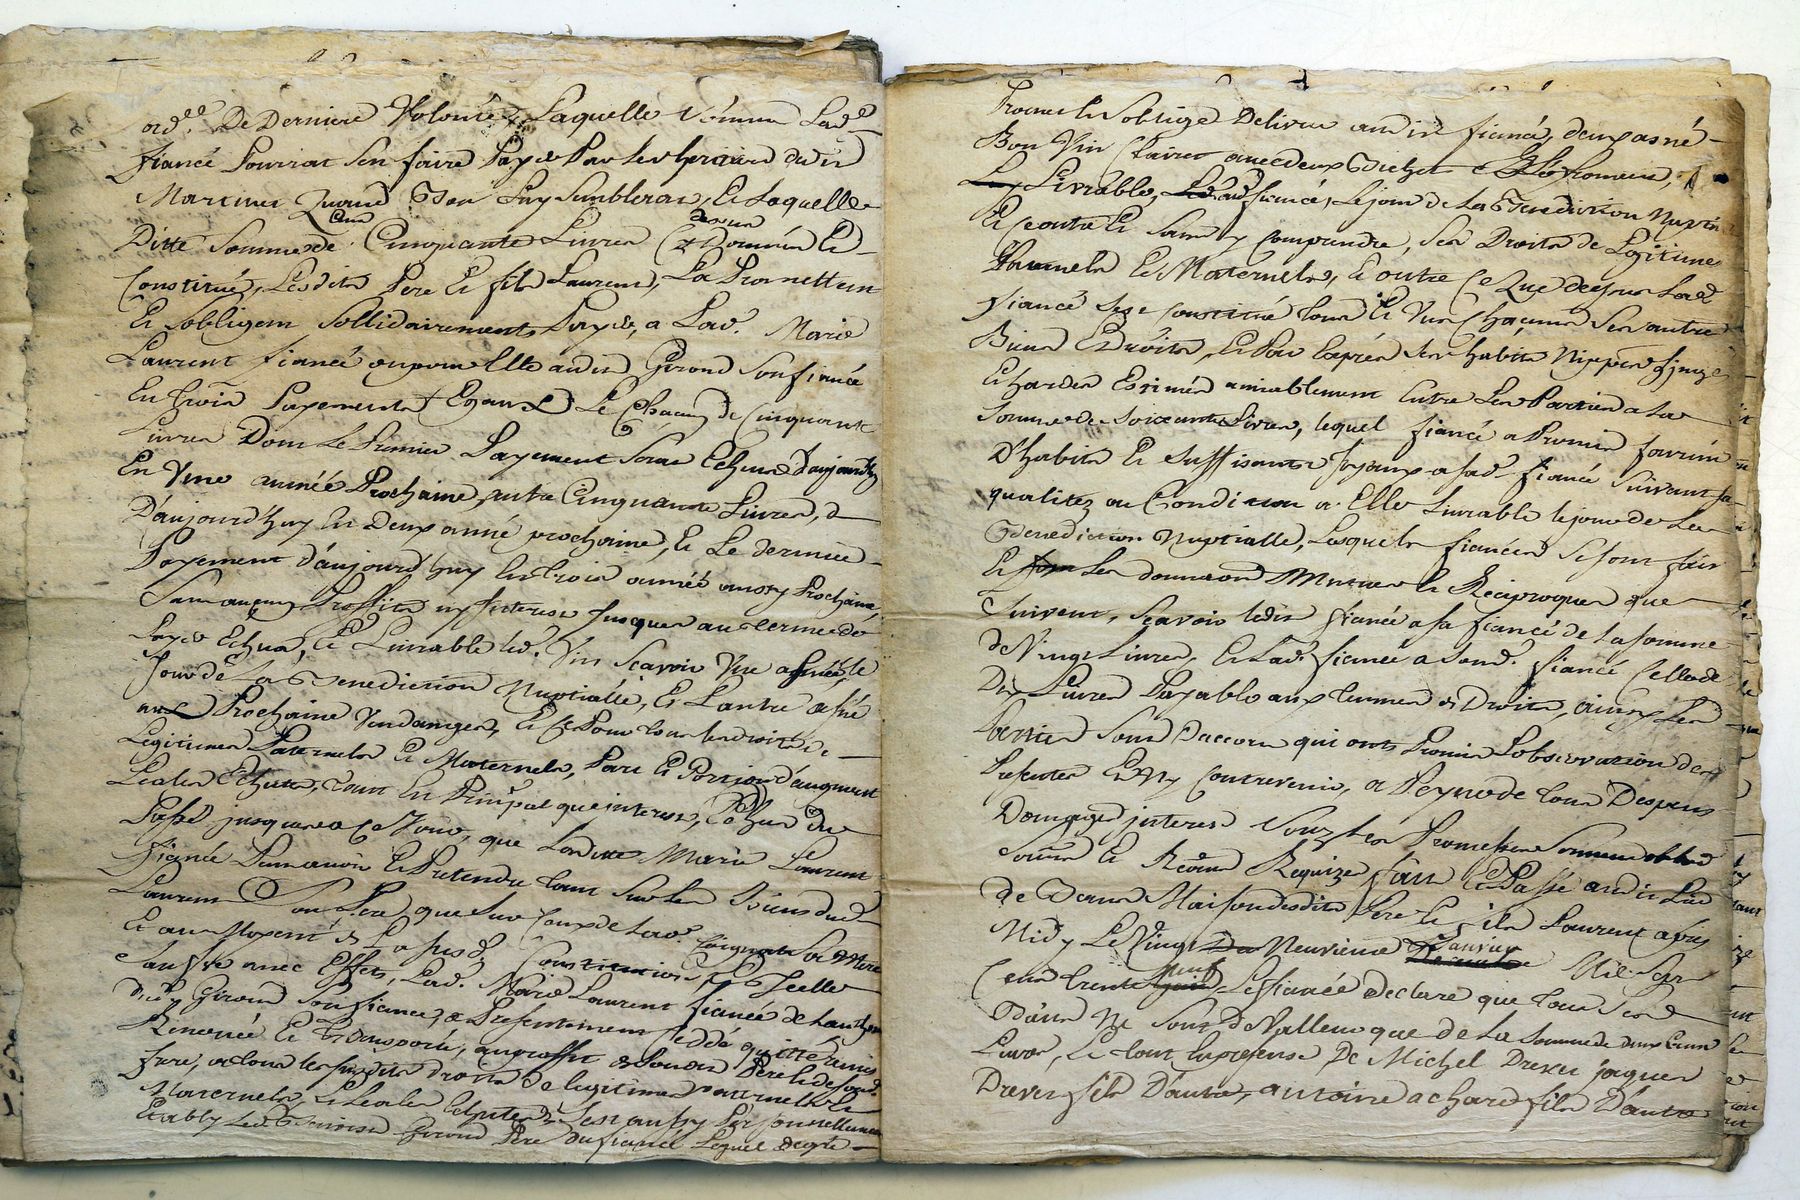 ord.ee De Derniere Volonté, Laquelle Lad.e
fiancé Pourrat Sen faire Paÿer Par les du dit
Martinet Quand Bon Luy Semblerat, Et Laquelle
Ditte Somme de Cent Cinquante Livres Donnée Et
Constitué, Lesdits Pere Et fils Laurent, La Promettent
Et Sobligent Sollidairement Payer, a Lad. Marie
Laurent fiancée ou pour Elle audit Giroud Son fiancé
En trois Payements Egaux Et Chacun de Cinquante
Livres Dont Le Premier Payement Sera Echeu D'aujourd'huy
En Une année Prochaine, autre Cinquante Livres, d
D'aujourd'huy En Deux année prochaine, Et Le dernier
Payement d'aujourd'huy En trois année aussy Prochaine,
Sans aucuns Proffits ny Interest Jusques au terme de
Paye Echus, Et Livrable led. Vin Scavoir Une le
Jour de La Benediction Nuptialle, Et L'autre
Prochaine Vendanges, Et Ce Pour tous les droits de
Legitimes Paternels Et Maternels, Part Et Portion d'augment
Leales Echutes, tant En Principal que interest, Echus du
Passé jusques a Ce Jour, que Laditte Marie Laurent
fiancée Pourrait Et Pretendre tant Sur Les Biens dud.
Laurent Son Pere, que Sur Ceux de Lad. Sa Mere
Et au Moyent de La Susd. Constitution Et Icelle
Sauve avec Effets, Lad. Marie Laurent fiancée de Lauthorité
dud. Giroud Son fiancé, a Presentement Ceddé quitté remis
Renoncé Et Transporté, au proffit de Sondit Pere Et de Son
frere, a tous les susdits droits de legitimes paternels Et
Maternels, Et Leales Echutes, Sest aussy Personnellement
Etably Led. Benoist Giroud Pere du fiancé Lequel de gré
Promet Et Soblige Delivrer audit fiancé, deux asnée
Bon Vin Clairet avec deux Bichet
Livrable, audit fiancé, Le jour de La Benediction Nuptialle
Et Contre Et Sans y Comprendre, Ses Droits de Légitimes
Paternels Et Maternels, Et outre Ce Que dessus Lad.
fiancé Sest Constitué tous Et Uns Chacuns Ses autres
Biens Et Droits, Et Par Exprés Ses habits Nippes Linge
Et hardes Estimés amiablement Entre Les Parties a La
Somme de Soixante Livres, lequel fiancé a Promis fournir
D'habits Et Suffisants Joyaux a Sad. fiancé Suivant Sa
qualitez ou Condition a Elle Livrable le jour de La
Benediction Nuptialle, Lesquels fiancés Se Sont fait
Et Les donnaons Mutuer Et Réciproques que
Suivent, Scavoir ledit fiancé a Sa fiancé de la Somme
de Vingt Livres, Et Lad. fiancée a Sond. fiancé Celle de
Dix Livres Payable aux termes de Droits, ainsy Les
Parties Sont D'accord qui ont Promis L'observation des
Presentes Et Ny Contrevenir, a Peyne de tous Despens
Domages interest Sous Les Promesses Serment obligé
Soums Et Renon Requize fait Et Passé audit Lieu
de Dans Maison desdits Pere Et fils Laurent aprés
Midy Le Vingt Neuvieme Janvier Mil Sept
Cent trente neuf Les fiancée Declare que tous Leurs
Biens Ne Sont de Valleur que de La Somme de Deux Cent
Livres, Le tout En presense De Michel Drevet jaques
Drevet fils D'autre, antoine achard fils D'autre